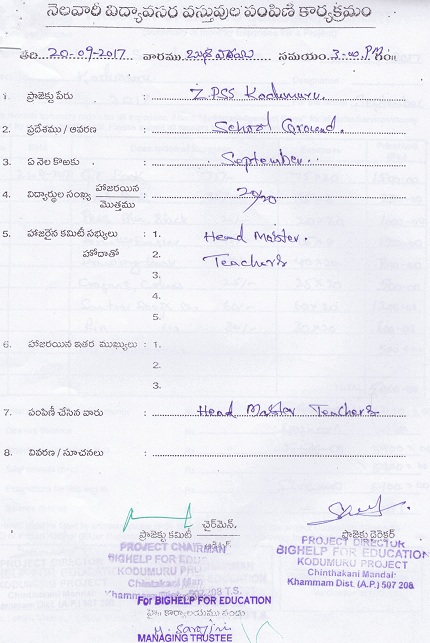 నెలవారీ విద్యావసర వస్తువుల పంపిణీ కార్యక్రమం
తేది. 20-09-2017 వారము బుధవారము సమయం. 3-00 PM గం॥
1. ప్రాజెక్టు పేరు : ZPSS Kodumuru
2. ప్రదేశము / ఆవరణ : School Ground.
3. ఏ నెల కొఱకు : September.
4. విద్యార్థుల సంఖ్య హాజరయిన మొత్తము : 20/20
5. హాజరైన కమిటీ సభ్యులు : 1. Head Master.
హోదాతో 2. Teachers
3.
4.
5.
6. హాజరయిన ఇతర ముఖ్యులు : 1.
2.
3.
7. పంపిణీ చేసిన వారు : Head Master Teachers
8. వివరణ / సూచనలు :
ప్రాజెక్టు కమిటీ చైర్‌మెన్. ప్రాజెక్టు డైరెక్టర్
PROJECT CHAIRMAN
BIGHELP FOR EDUCATION
KODUMURU PROJECT
Chinthakani Mandal
Khammam Dist. 507 208 T.S.
PROJECT DIRECTOR
BIGHELP FOR EDUCATION
KODUMURU PROJECT
Chinthakani Mandal
Khammam Dist. (A.P.) 507 208
For BIGHELP FOR EDUCATION
M. Sarojini
MANAGING TRUSTEE